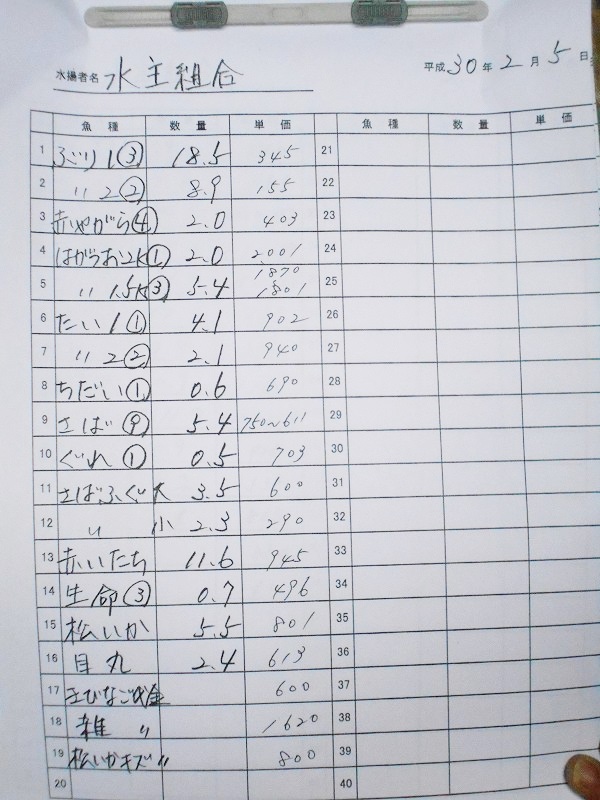 水揚者名 水主組合 平成30年2月5日
魚種 数量 単価 魚種 数量 単価
1 ぶり1③ 18.5 345 21
2 〃2② 8.9 155 22
3 赤やがら④ 2.0 403 23
4 はがつお2K① 2.0 2001 24
5 〃1.5K③ 5.4 1870 1801 25
6 たい1① 4.1 902 26
7 〃2② 2.1 940 27
8 ちだい① 0.6 690 28
9 さば⑨ 5.4 750~611 29
10 ぐれ① 0.5 703 30
11 さばふぐ大 3.5 600 31
12 〃 小 2.3 290 32
13 赤いたち 11.6 945 33
14 生命③ 0.7 496 34
15 松いか 5.5 801 35
16 目丸 2.4 613 36
17 きびなご代金 600 37
18 雑〃 1620 38
19 松いかキズ〃 800 39
20 40